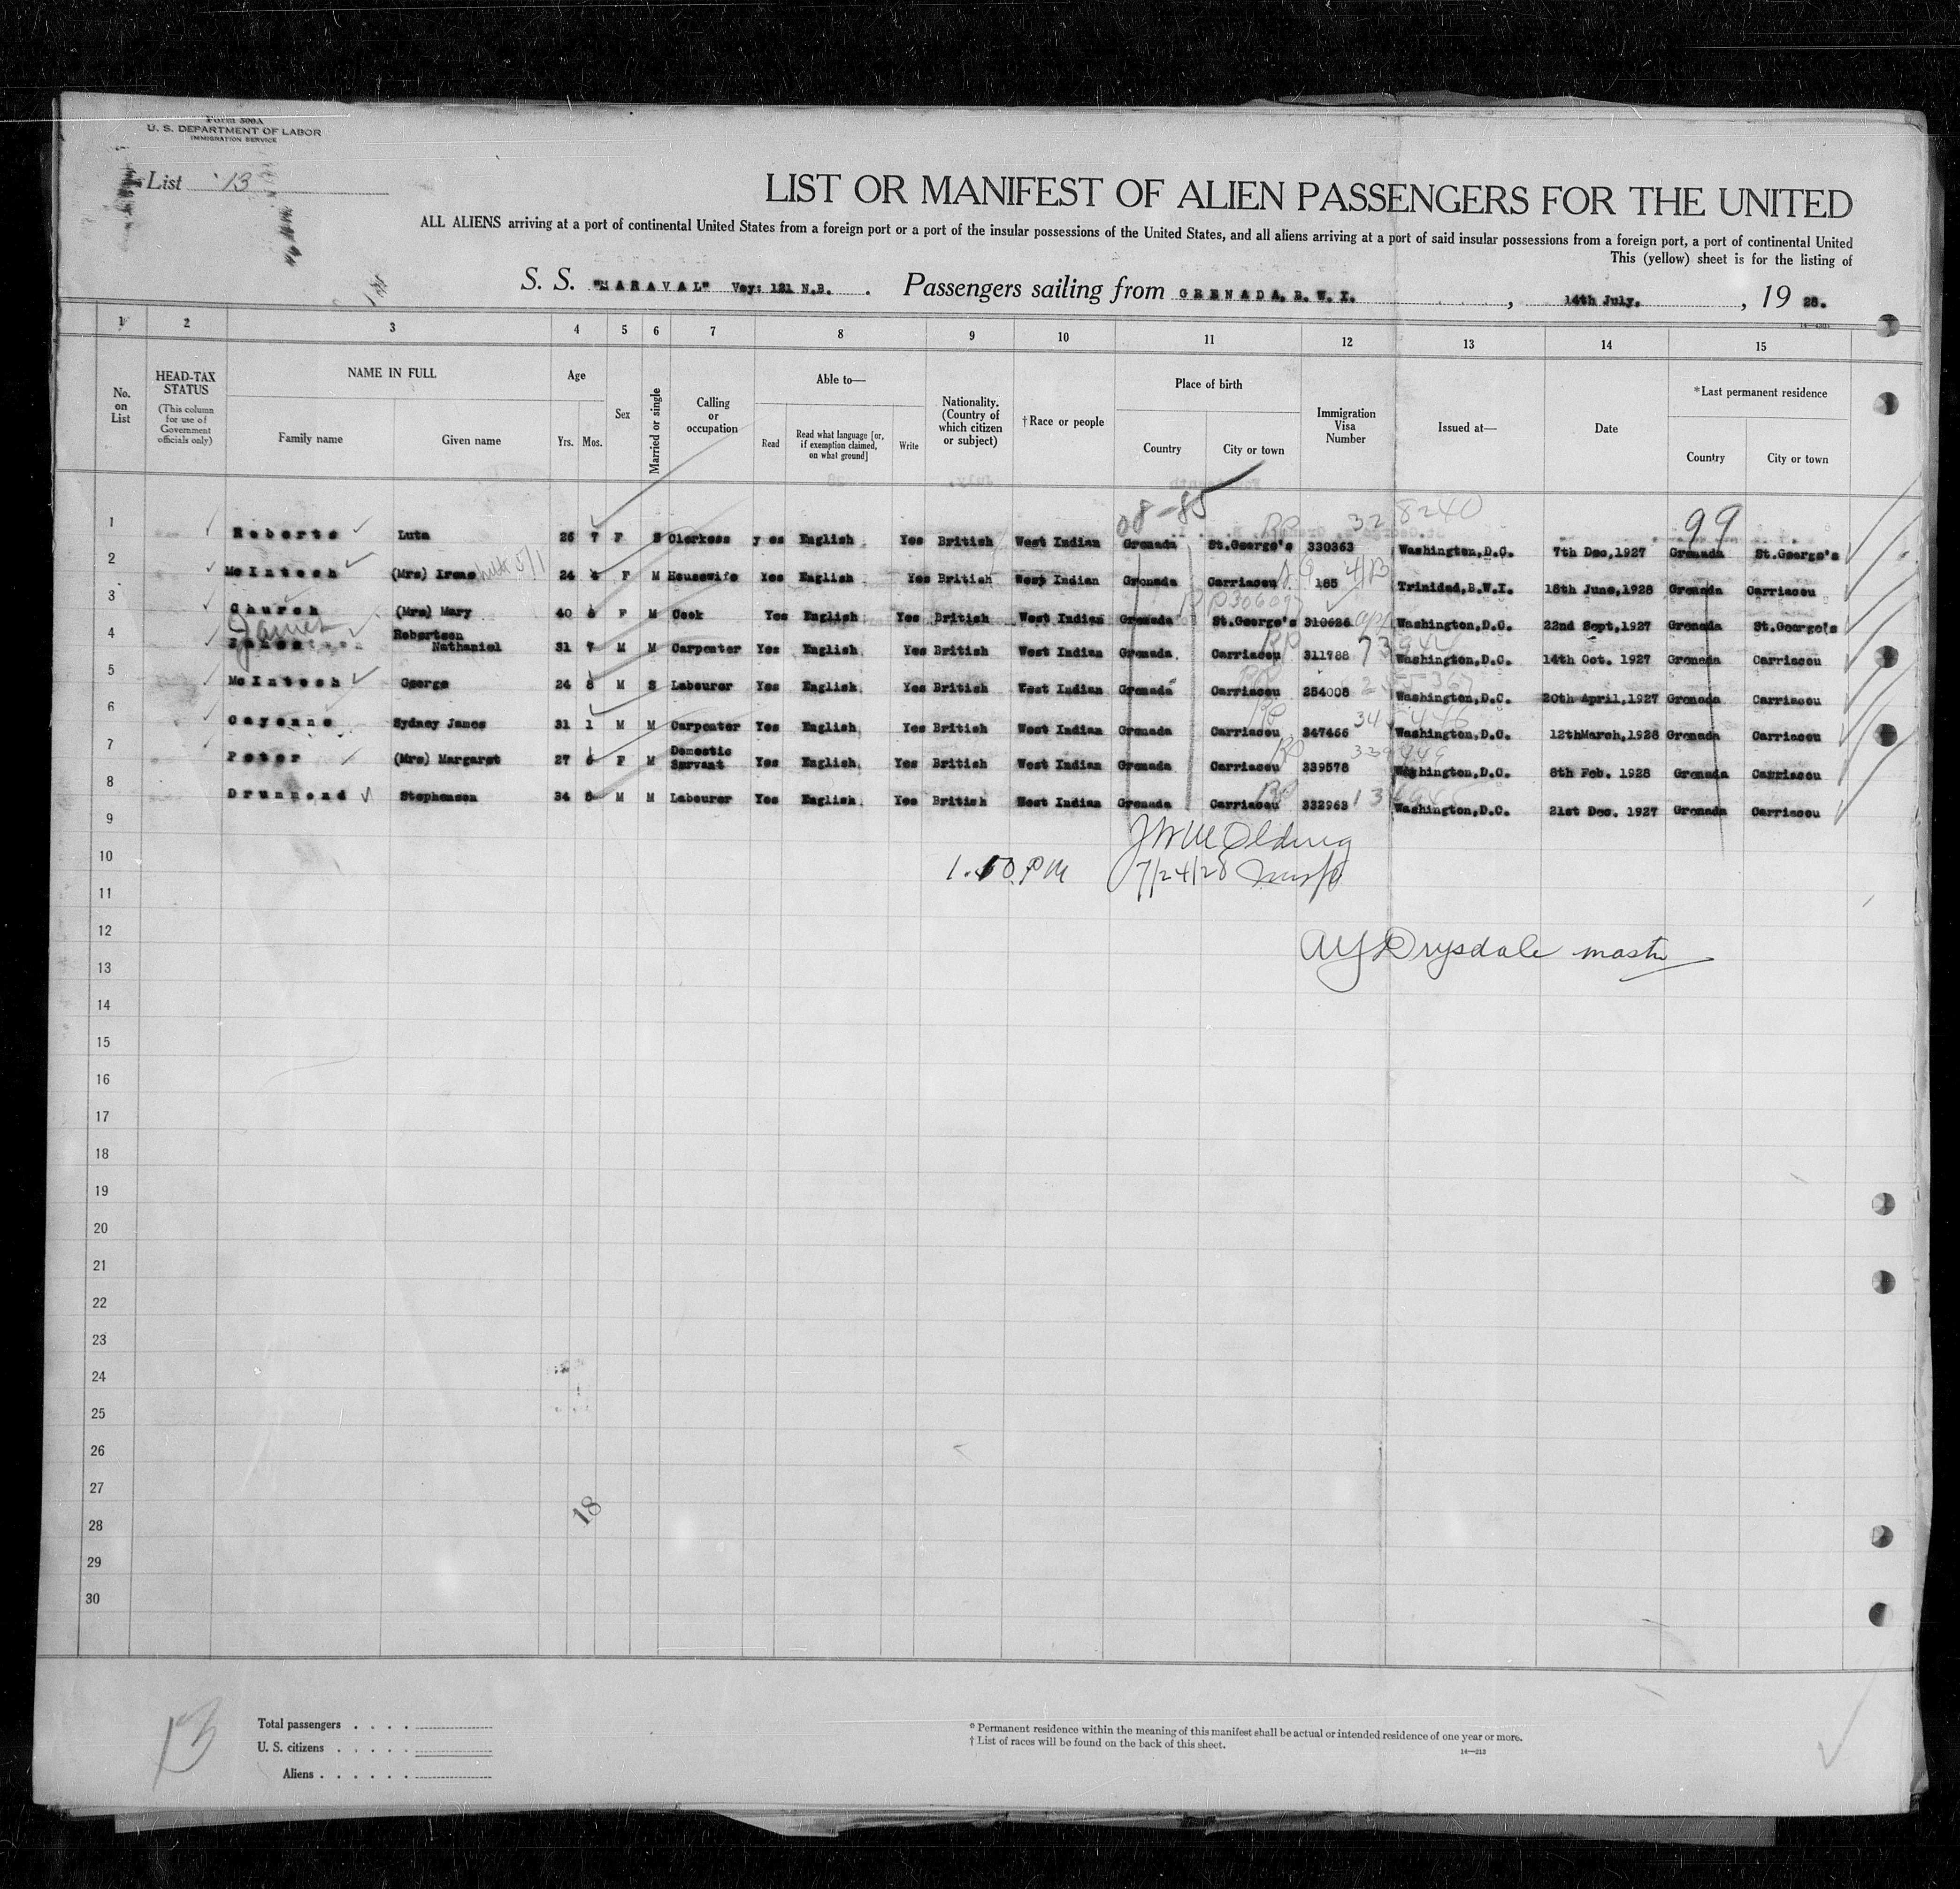 Form 500A
U. S. DEPARTMENT OF LABOR
IMMIGRATION SERVICE
List 13
LIST OR MANIFEST OF ALIEN PASSENGERS FOR THE UNITED
ALL ALIENS arriving at a port of continental United States from a foreign port or a port of the insular possessions of the United States, and all aliens arriving at a port of said insular possessions from a foreign port, a port of continental United
This (yellow) sheet is for the listing of
S. S. "MARAVAL" Voy: 121 N.B. Passengers sailing from GRENADA, B. W. I. , 14th July. , 19 28.
1 2 3 4 5 6 7 8 9 10 11 12 13 14 15
No. on List
HEAD-TAX STATUS (This column for use of Government officials only)
NAME IN FULL
Family name Given name
Age
Yrs. Mos.
Sex
Married or single
Calling or occupation
Able to—
Read Read what language [or, if exemption claimed, on what ground] Write
Nationality. (Country of which citizen or subject)
†Race or people
Place of birth
Country City or town
Immigration Visa Number
Issued at—
Date
*Last permanent residence
Country City or town
08-85 99
1 Roberts Luta 26 7 F S Clerkess yes English Yes British West Indian Grenada St.George's 330363 Washington,D.C. 7th Dec,1927 Grenada St.George's
2 McIntosh (Mrs) Irene 24 F M Housewife Yes English Yes British West Indian Grenada Carriacou 185 Trinidad,B.W.I. 18th June,1928 Grenada Carriacou
3 Church (Mrs) Mary 40 F M Cook Yes English Yes British West Indian Grenada St.George's 310626 Washington,D.C. 22nd Sept,1927 Grenada St.George's
James
4 Robertson Nathaniel 31 7 M M Carpenter Yes English Yes British West Indian Grenada Carriacou 311788 Washington,D.C. 14th Oct. 1927 Grenada Carriacou
5 McIntosh George 24 8 M S Labourer Yes English Yes British West Indian Grenada Carriacou 254008 Washington,D.C. 20th April,1927 Grenada Carriacou
6 Cayenne Sydney James 31 1 M M Carpenter Yes English Yes British West Indian Grenada Carriacou 347466 Washington,D.C. 12thMarch,1928 Grenada Carriacou
7 Peter (Mrs) Margaret 27 6 F M Domestic Servant Yes English Yes British West Indian Grenada Carriacou 339578 Washington,D.C. 8th Feb. 1928 Grenada Carriacou
8 Drummond Stephenson 34 M M Labourer Yes English Yes British West Indian Grenada Carriacou 332963 Washington,D.C. 21st Dec. 1927 Grenada Carriacou
9
10 1.10 PM 7/24/28
11
12 Drysdale master
13
14
15
16
17
18
19
20
21
22
23
24
25
26
27
18
28
29
30
13
Total passengers . . . .
U. S. citizens . . . . .
Aliens . . . . . .
* Permanent residence within the meaning of this manifest shall be actual or intended residence of one year or more.
† List of races will be found on the back of this sheet.
14—213